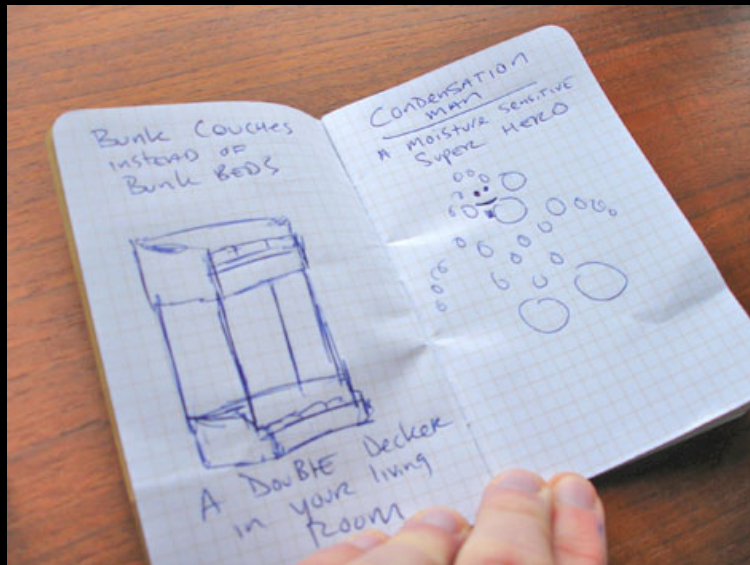 Bunk Couches
instead of
Bunk BEDS
A DOUBLE Decker
in your living
Room
CONDENSATION
MAN
A MOISTURE SENSITIVE
SUPER HERO